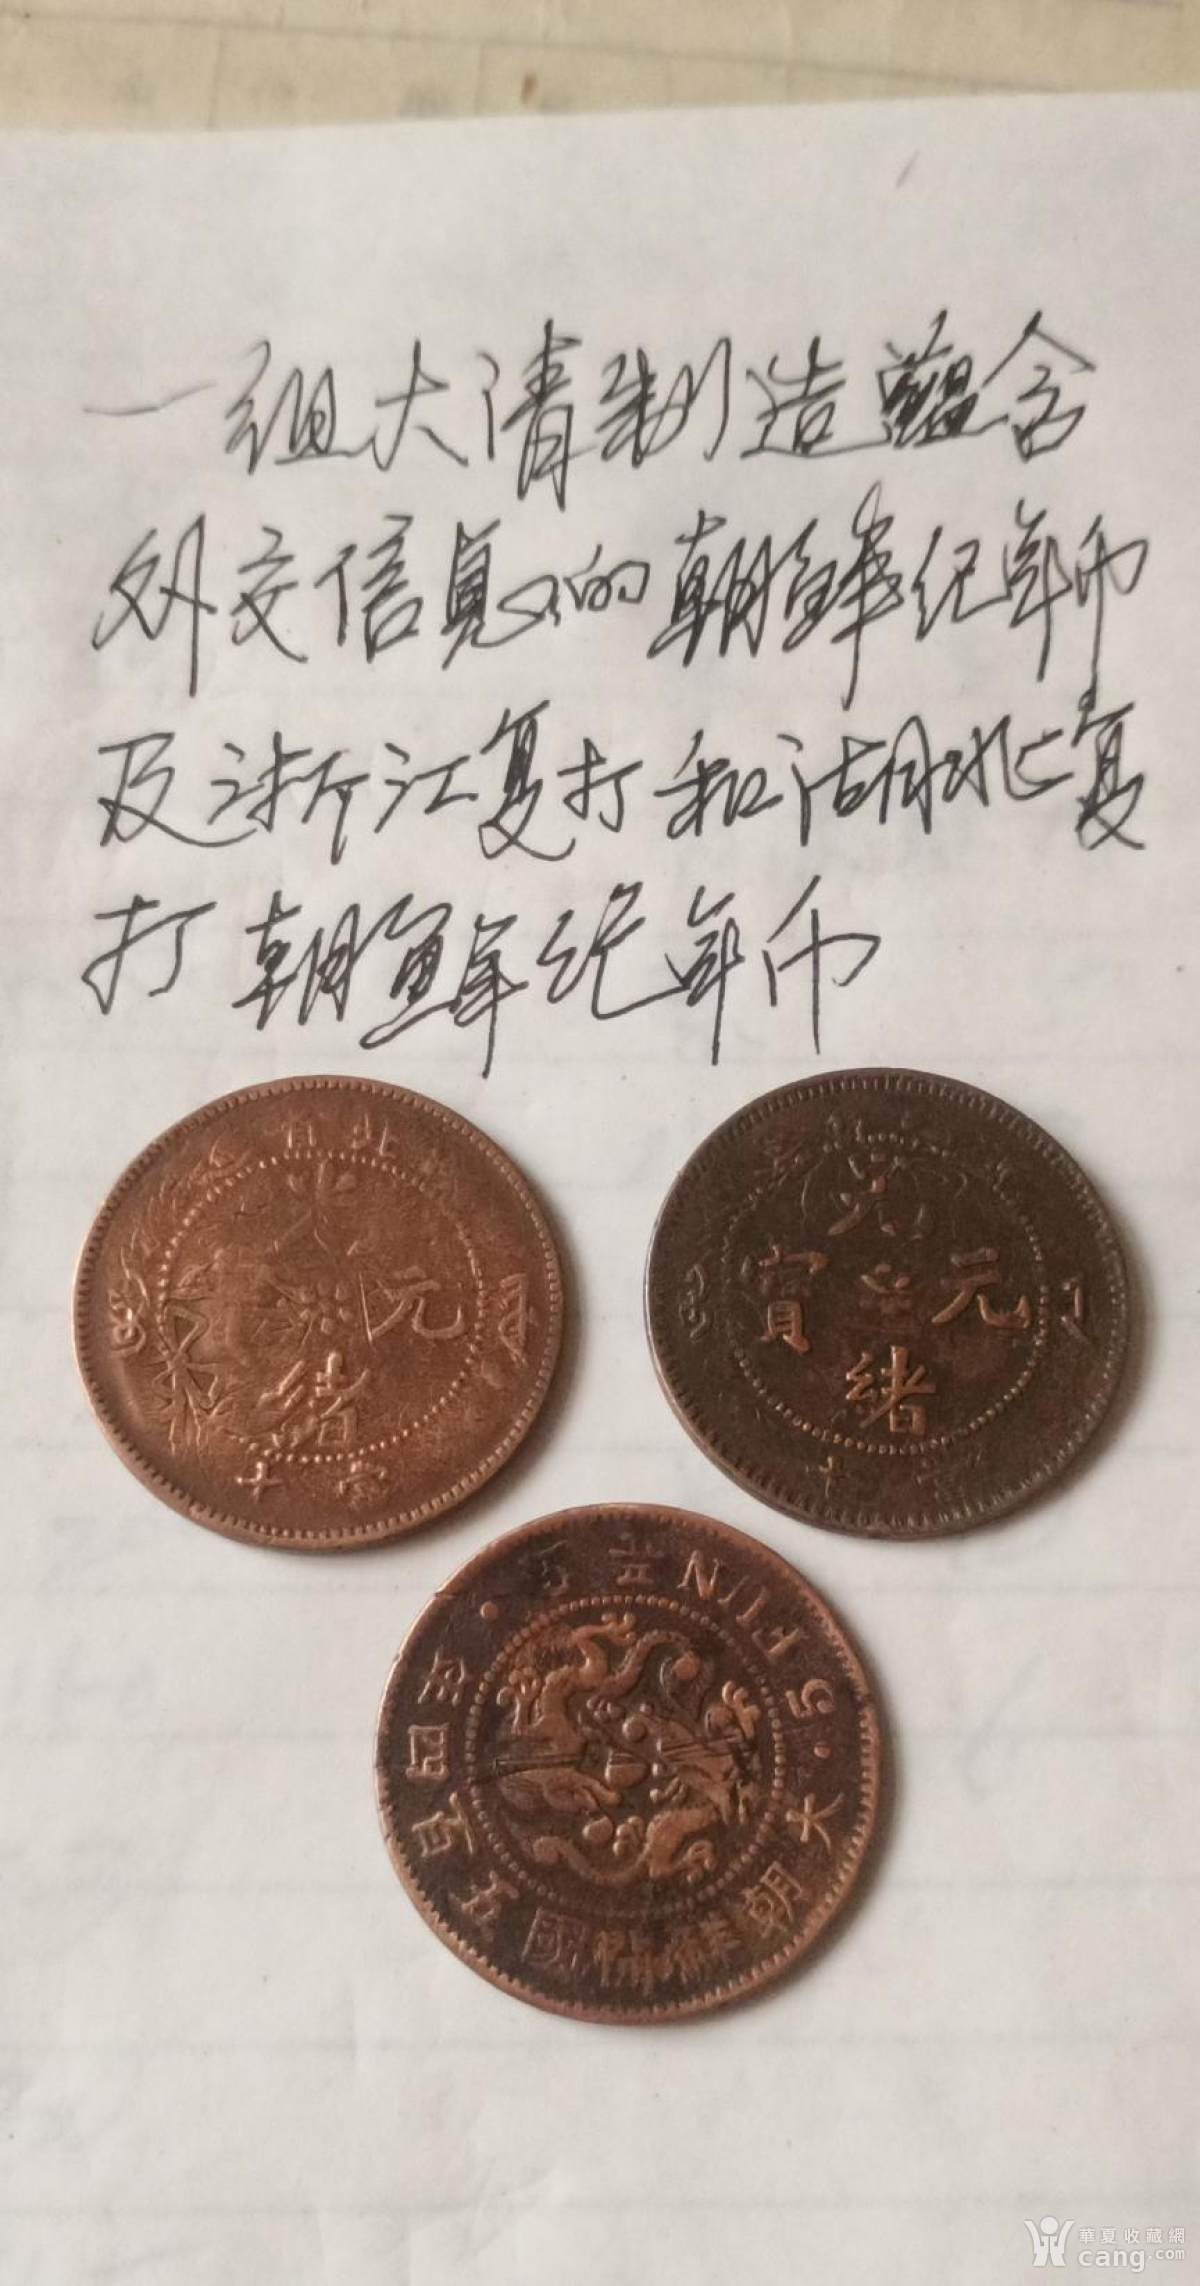 一组大清制造蕴含
外交信息的朝鲜纪年币
及浙江复打和湖北复
打朝鲜纪年币
北省
光
元
緒
當十
光
元
寶
緒
當十
大朝鮮開國五百四年
五分
5 FUN
華夏收藏網
cang.com